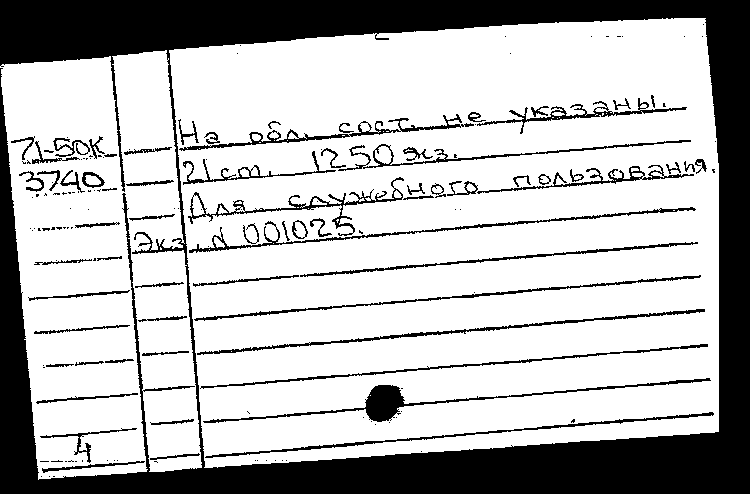 71-50к На обл. сост. не указаны.
3740 21 cm. 1250 экз.
Для служебного пользования.
Экз. № 001025.
4